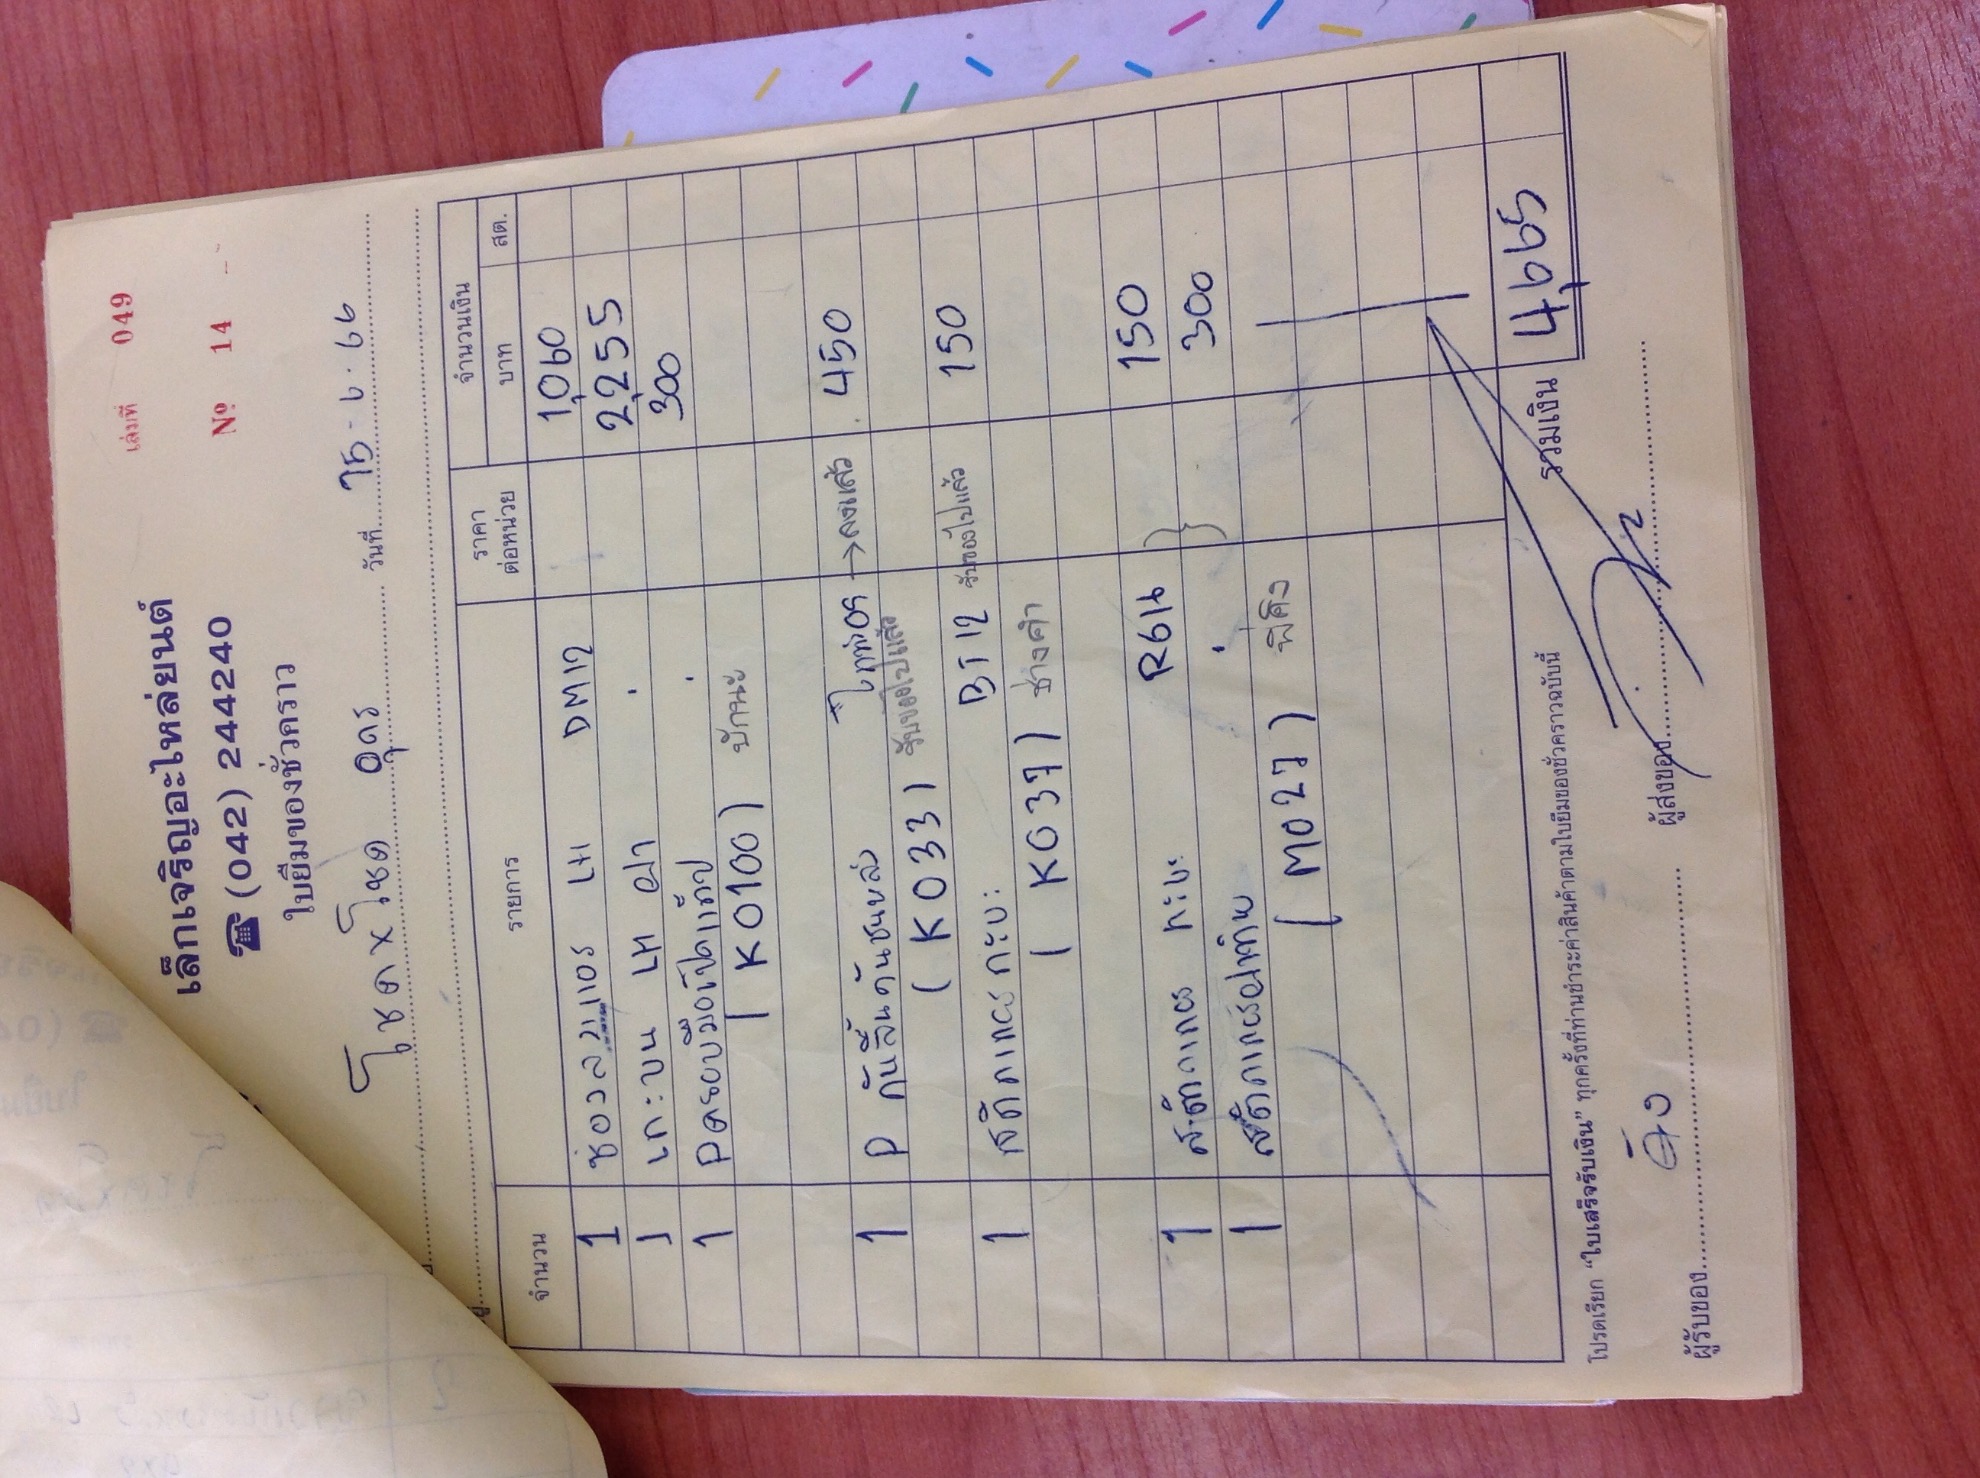 เล่มที่ 049
เล็กเจริญอะไหล่ยนต์
Nº 14
☎ (042) 244240
ใบยืมของชั่วคราว
โชค x โชค อุดร วันที่ 15-6-66
จำนวน รายการ ราคาต่อหน่วย จำนวนเงิน
บาท สต.
1 LH DM12 1,060
1 LH ฝา 2,255
1 300
( K0100 ) ปักนะ
1 P กันลื้นกันชนหลัง → ลงแล้ว 450
( K033 ) รับของไปแล้ว
1 สติกเกอร์ กะบะ BT12 รับของไปแล้ว 150
( K037 ) ช่างคำ
1 สติกเกอร์ กะบะ R616 150
1 สติกเกอร์ฝาท้าย 300
( M027 )
รวมเงิน 4,665
โปรดเรียก "ใบเสร็จรับเงิน" ทุกครั้งที่ท่านชำระค่าสินค้าตามใบยืมของชั่วคราวฉบับนี้
ผู้รับของ ผู้ส่งของ